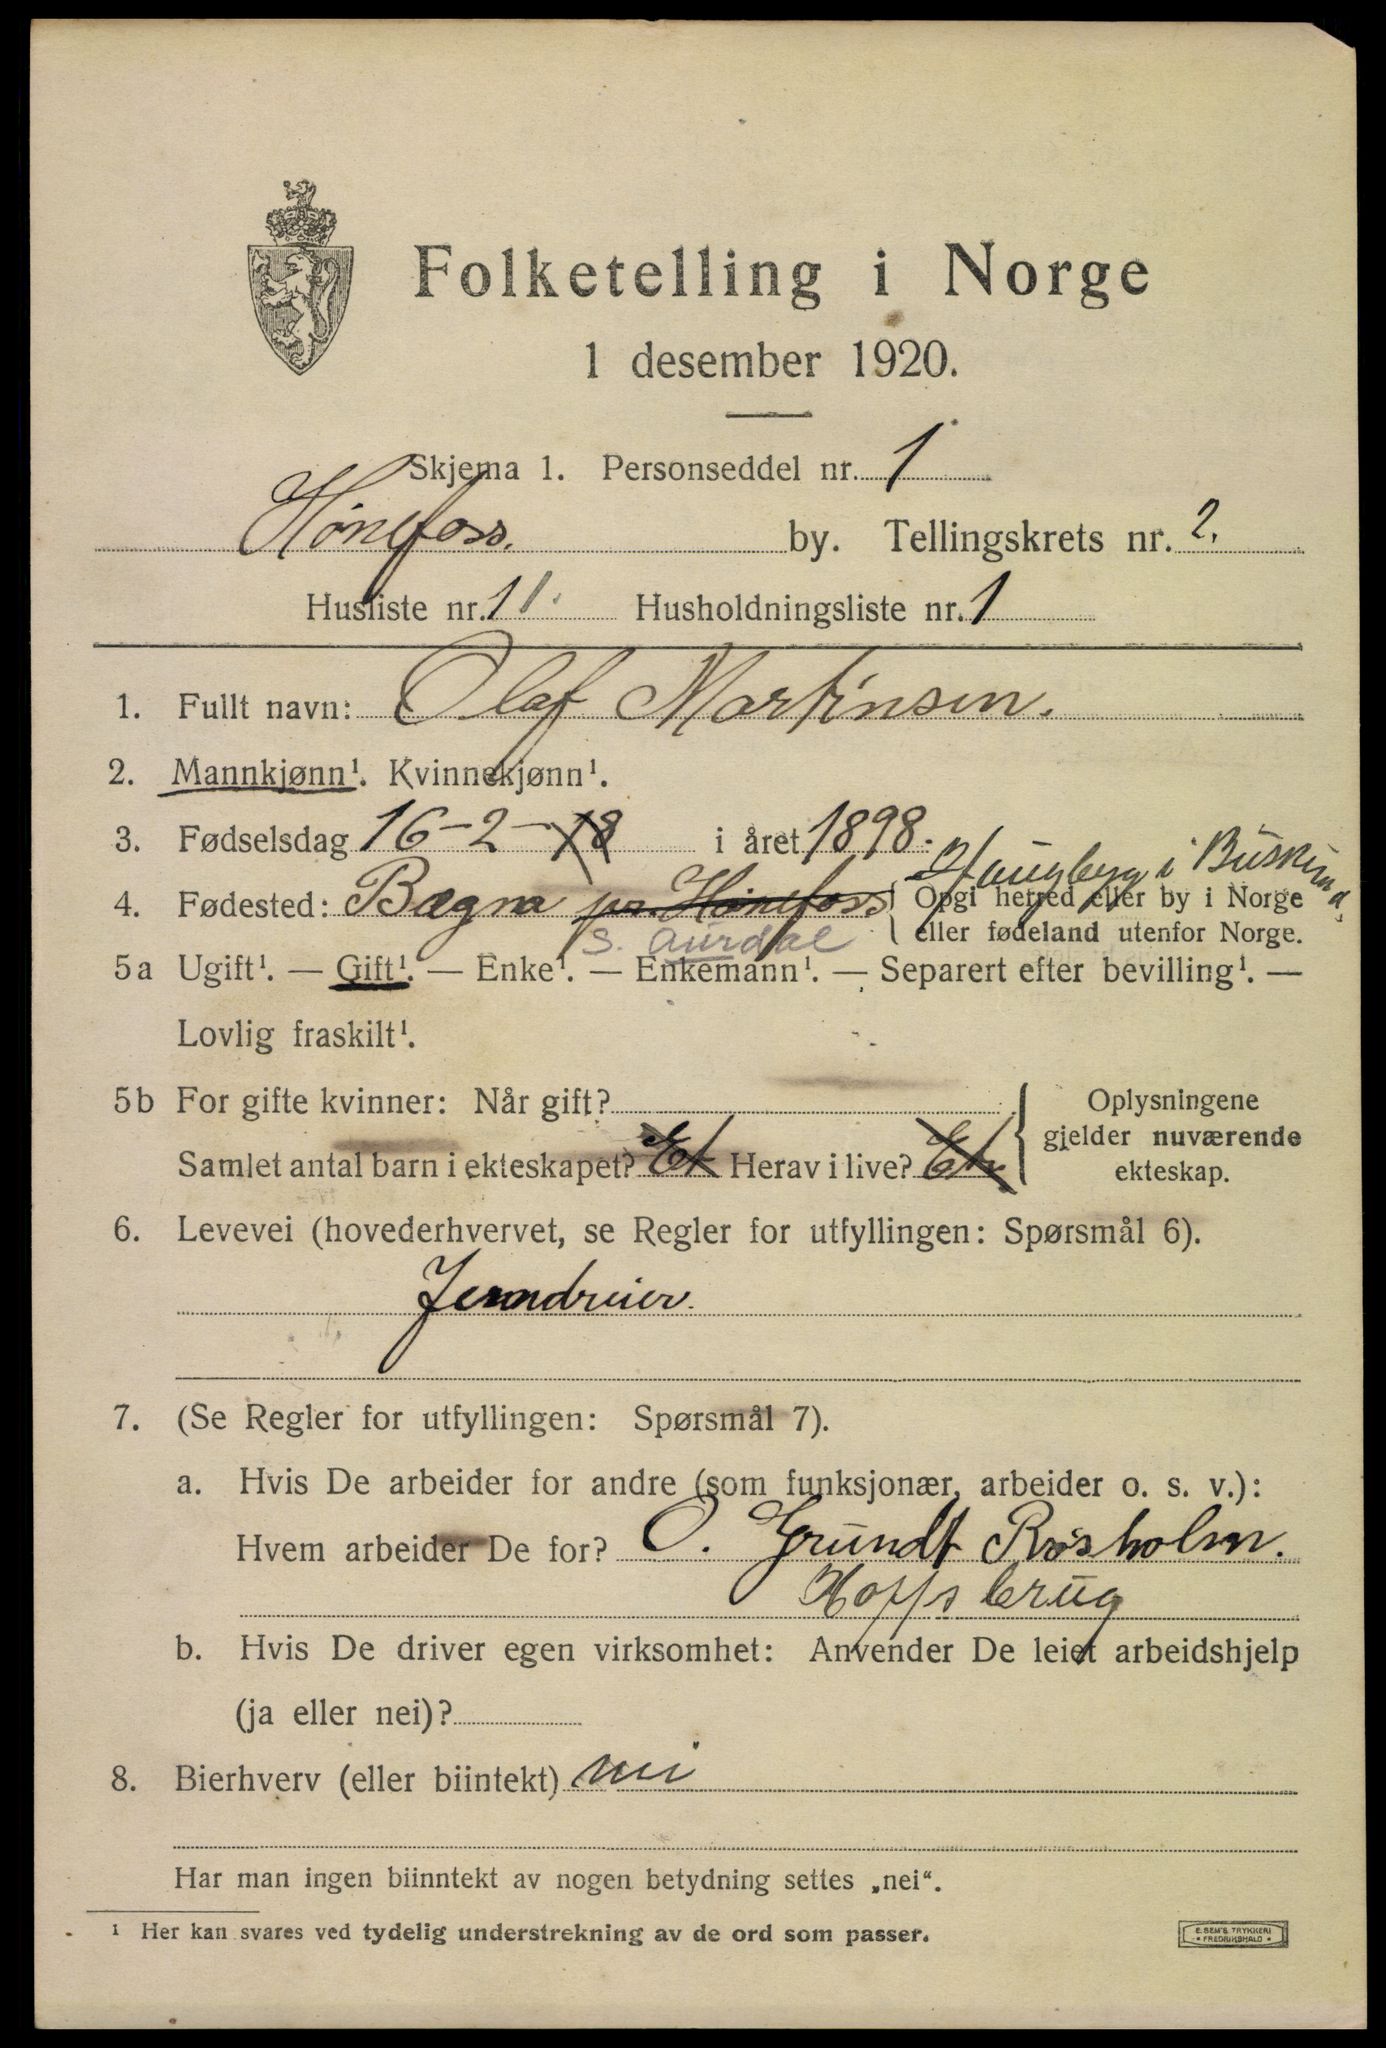 Folketelling i Norge
1 desember 1920.
Skjema 1. Personseddel nr. 1
Hönefoss. by. Tellingskrets nr. 2.
Husliste nr. 11. Husholdningsliste nr. 1
1. Fullt navn: Olaf Martinsen.
2. Mannkjønn¹. Kvinnekjønn¹.
3. Fødselsdag 16-2-18 i året 1898.
Haugberg i Buskerud.
4. Fødested: Bagna pr. Hönefoss { Opgi herred eller by i Norge
S. Aurdal eller fødeland utenfor Norge.
5a Ugift¹. — Gift¹. — Enke¹. — Enkemann¹. — Separert efter bevilling¹. —
Lovlig fraskilt¹.
5b For gifte kvinner: Når gift? } Oplysningene
gjelder nuværende
Samlet antal barn i ekteskapet? Et Herav i live? Et. ekteskap.
6. Levevei (hovederhvervet, se Regler for utfyllingen: Spørsmål 6).
Jerndreier.
7. (Se Regler for utfyllingen: Spørsmål 7).
a. Hvis De arbeider for andre (som funksjonær, arbeider o. s. v.):
Hvem arbeider De for? O. Grundt Rosholm.
Hoffsbrug
b. Hvis De driver egen virksomhet: Anvender De leiet arbeidshjelp
(ja eller nei)?
8. Bierhverv (eller biintekt) nei
Har man ingen biinntekt av nogen betydning settes „nei“.
¹ Her kan svares ved tydelig understrekning av de ord som passer.
E. SEM'S TRYKKERI
• FREDRIKSHALD •